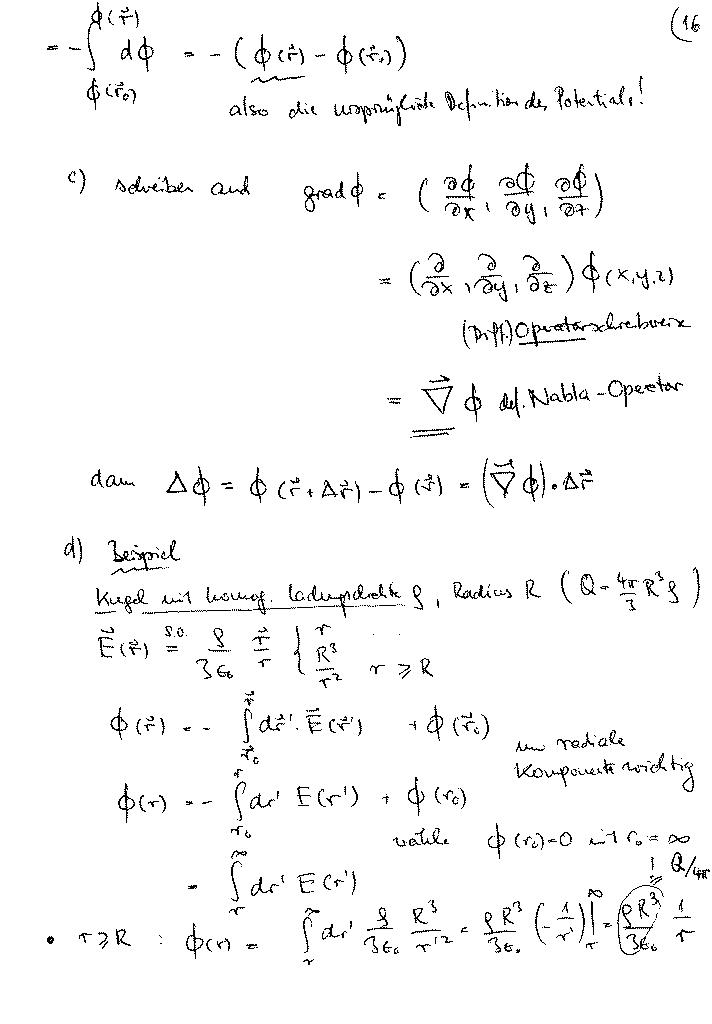 (16
= - ∫_{ϕ(r⃗₀)}^{ϕ(r⃗)} dϕ = - (ϕ(r⃗) - ϕ(r⃗₀))
also die ursprüngliche Definition des Potentials!
c) schreiben auch grad ϕ = (∂ϕ/∂x, ∂ϕ/∂y, ∂ϕ/∂z)
= (∂/∂x, ∂/∂y, ∂/∂z) ϕ(x,y,z)
(Diff.)Operatorschreibweise
= ∇⃗ ϕ def. Nabla-Operator
dann Δϕ = ϕ(r⃗+Δr⃗) - ϕ(r⃗) = (∇⃗ϕ)·Δr⃗
d) Beispiel
Kugel mit homog. Ladungsdichte ρ, Radius R (Q = 4π/3 R³ρ)
E⃗(r⃗) =^{s.o.} ρ/3ε₀ r⃗/r { r
R³/r² r ≥ R
ϕ(r⃗) = - ∫_{r⃗₀}^{r⃗} dr⃗'·E⃗(r⃗') + ϕ(r⃗₀)
nur radiale
Komponente wichtig
ϕ(r) = - ∫_{r₀}^{r} dr' E(r') + ϕ(r₀)
wähle ϕ(r₀)=0 mit r₀ = ∞
= ∫_{r}^{∞} dr' E(r')
! = Q/4π
• r≥R : ϕ(r) = ∫_{r}^{∞} dr' ρ/3ε₀ R³/r'² = ρR³/3ε₀ (-1/r')|_{r}^{∞} = ρR³/3ε₀ 1/r